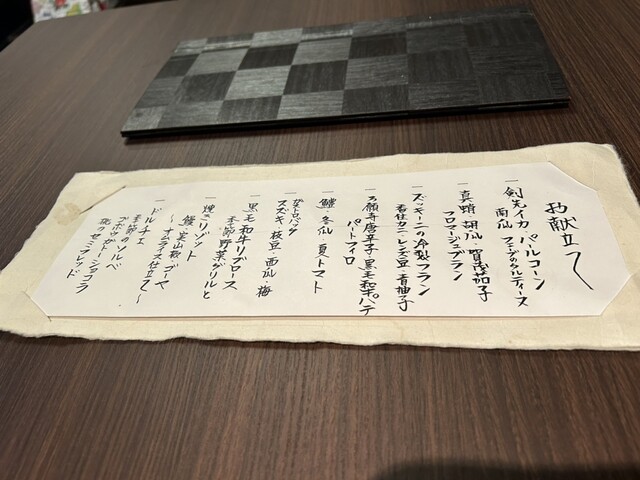 お献立て
一 剣先イカ・パールコーン
南瓜
一 真蛸・胡瓜・賀茂茄子
フロマージュブラン
一 ズッキーニの冷製フラン
香住カニ・レンズ豆・青柚子
一 万願寺唐辛子・黒毛和牛パテ
パートフィロ
一 鱧・冬瓜・夏トマト
一
スズキ・枝豆・西瓜・梅
一 黒毛和牛リブロース
季節野菜グリルと
一 焼きリゾット
鰻・実山椒・ゴーヤ
〜オムライス仕立て〜
一 ドルチェ
季節のソルベ